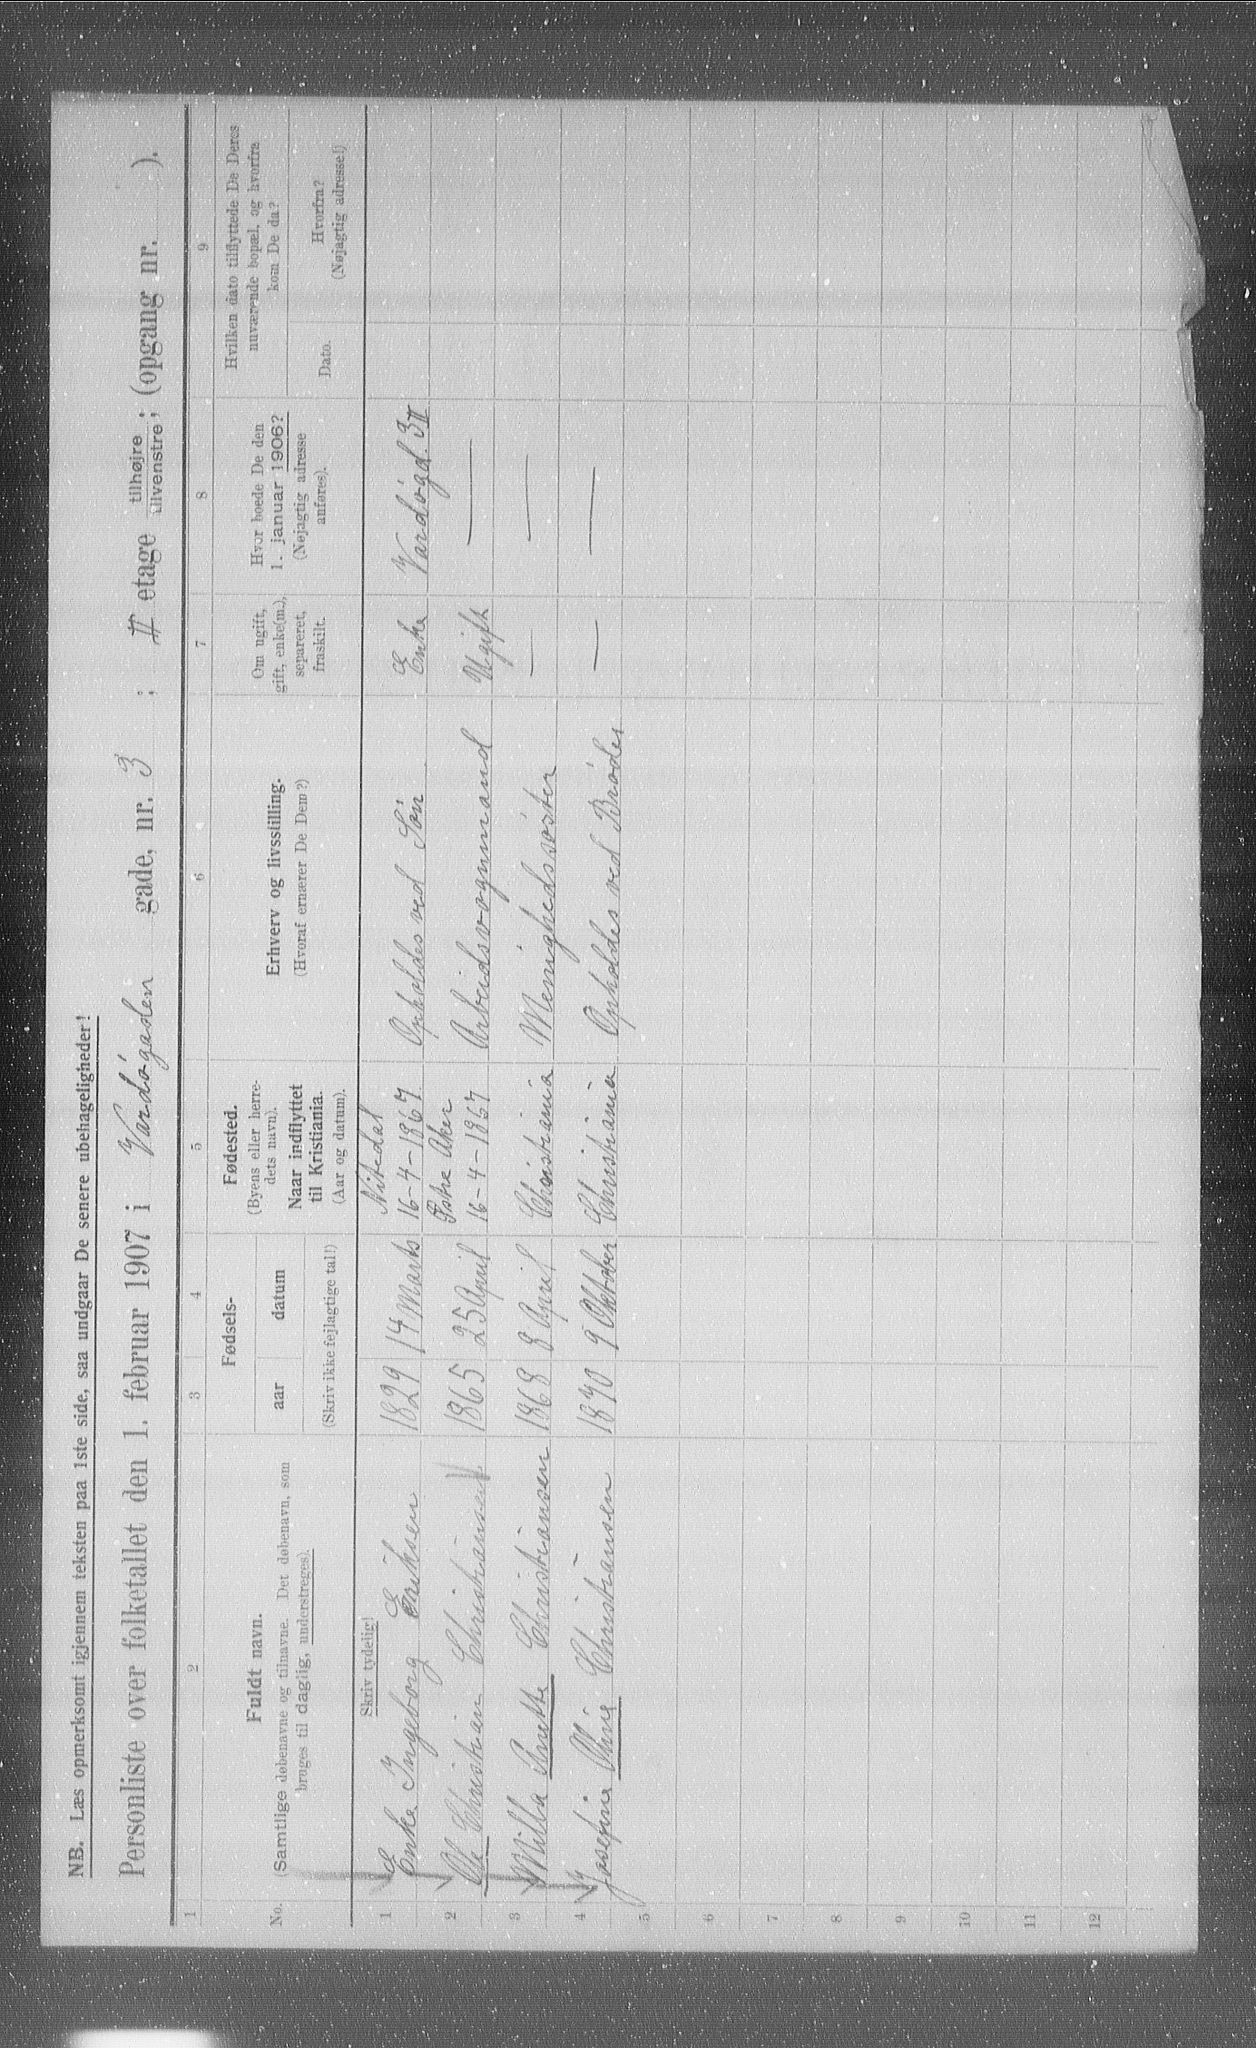 NB. Læs opmerksomt igjennem teksten paa 1ste side, saa undgaar De senere ubehageligheder!
Personliste over folketallet den 1. februar 1907 i Vardøgaden gade, nr. 3 ; II etage tilhøjre tilvenstre; (opgang nr. ).
1 2 3 4 5 6 7 8 9
No.
Fuldt navn.
(Samtlige døbenavne og tilnavne. Det døbenavn, som
bruges til daglig, understreges).
Fødsels-
aar datum
(Skriv ikke fejlagtige tal!)
Fødested.
(Byens eller herre-
dets navn).
Naar indflyttet
til Kristiania.
(Aar og datum).
Erhverv og livsstilling.
(Hvoraf ernærer De Dem?)
Om ugift,
gift, enke(m.),
separeret,
fraskilt.
Hvor boede De den
1. januar 1906?
(Nøjagtig adresse
anføres).
Hvilken dato tilflyttede De Deres
nuværende bopæl, og hvorfra
kom De da?
Dato.
Hvorfra?
(Nøjagtig adresse!)
Skriv tydelig!
Nitedal
1 Enke Ingeborg Eriksen 1829 14 Marts 16-4-1867 Opholdes ved Søn Enke Vardøgd. 3 II
Østre Aker
2 Ole Christian Christiansen 1865 25 April 16-4-1867 Arbeidsvognmand Ugift —
3 Milla Anette Christiansen 1868 8 April Christiania Menighedssøster — —
4 Josefine Christiansen 1870 9 Oktober Christiania Opholdes ved Brøder — —
5
6
7
8
9
10
11
12